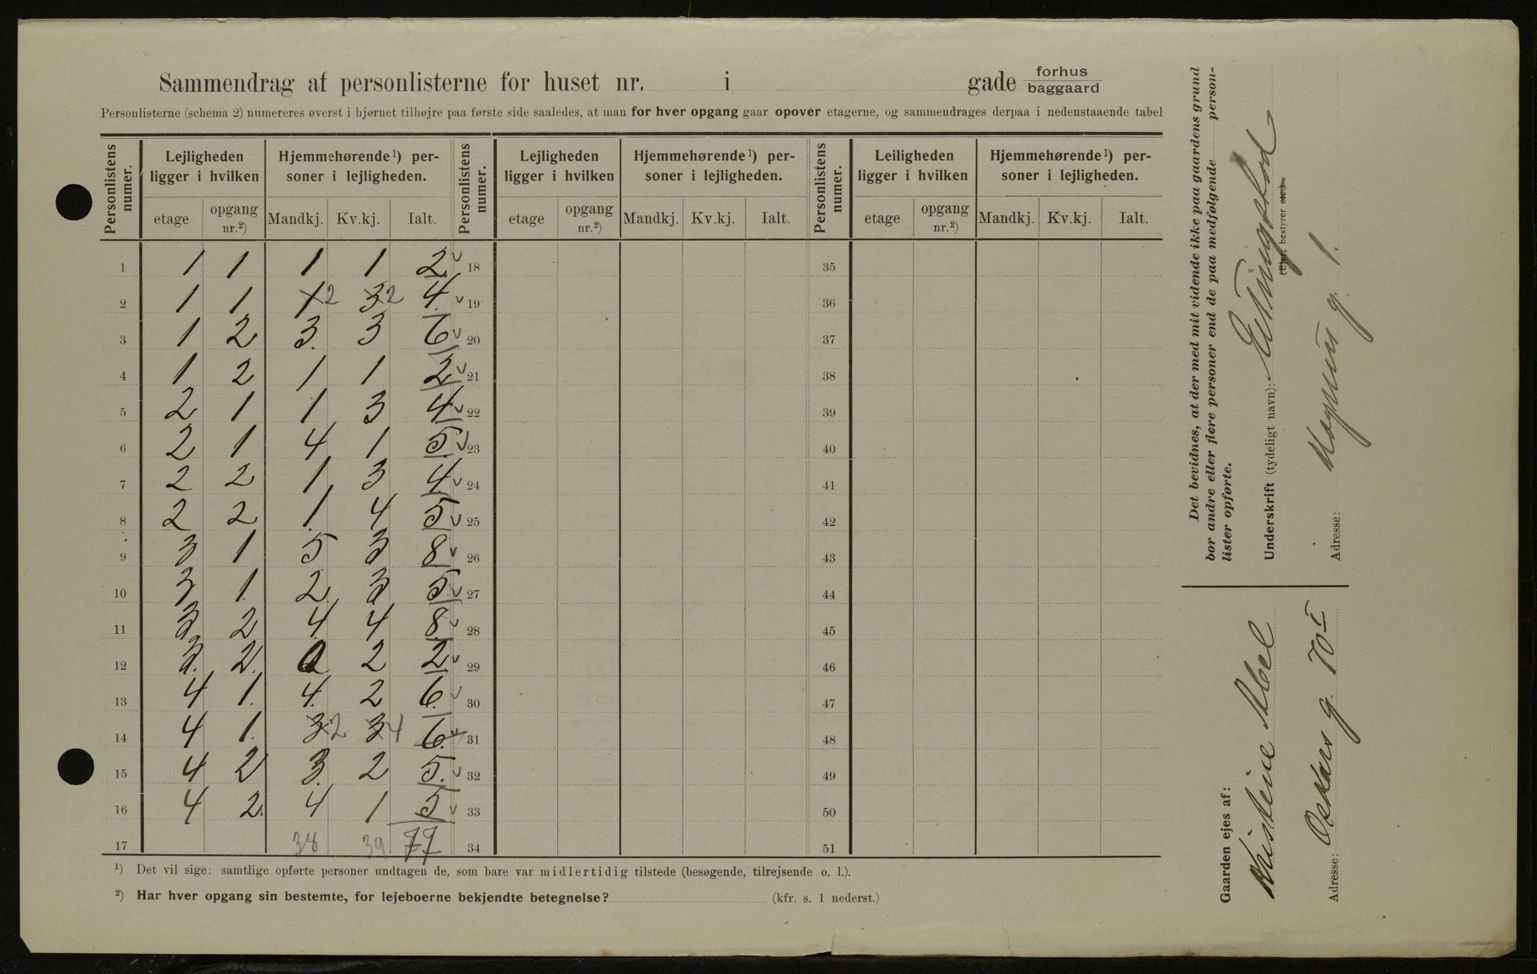 Sammendrag af personlisterne for huset nr. i gade forhus
baggaard
Personlisterne (schema 2) numereres øverst i hjørnet tilhøjre paa første side saaledes, at man for hver opgang gaar opover etagerne, og sammendrages derpaa i nedenstaaende tabel
Personlistens numer. Lejligheden ligger i hvilken Hjemmehørende¹) personer i lejligheden. Personlistens numer. Lejligheden ligger i hvilken Hjemmehørende¹) personer i lejligheden. Personlistens numer. Leiligheden ligger i hvilken Hjemmehørende¹) personer i lejligheden.
etage opgang nr.²) Mandkj. Kv.kj. Ialt. etage opgang nr.²) Mandkj. Kv.kj. Ialt. etage opgang nr.²) Mandkj. Kv.kj. Ialt.
1 1 1 1 1 2 18 35
2 1 1 1 2 3 2 4 19 36
3 1 2 3 3 6 20 37
4 1 2 1 1 2 21 38
5 2 1 1 3 4 22 39
6 2 1 4 1 5 23 40
7 2 2 1 3 4 24 41
8 2 2 1 4 5 25 42
9 3 1 5 3 8 26 43
10 3 1 2 3 5 27 44
11 3 2 4 4 8 28 45
12 3 2 0 2 2 29 46
13 4 1 4 2 6 30 47
14 4 1 3 2 3 4 6 31 48
15 4 2 3 2 5 32 49
16 4 2 4 1 5 33 50
17 38 39 77 34 51
¹) Det vil sige: samtlige opførte personer undtagen de, som bare var midlertidig tilstede (besøgende, tilrejsende o. l.).
²) Har hver opgang sin bestemte, for lejeboerne bekjendte betegnelse? (kfr. s. 1 nederst.)
Det bevidnes, at der med mit vidende ikke paa gaardens grund
bor andre eller flere personer end de paa medfølgende person-
lister opførte.
Underskrift (tydeligt navn):
(Ejer, bestyrer etc.)
Adresse: Magnus g. 1.
Gaarden ejes af:
Kristine Abel
Adresse: Oskars g. 70 I